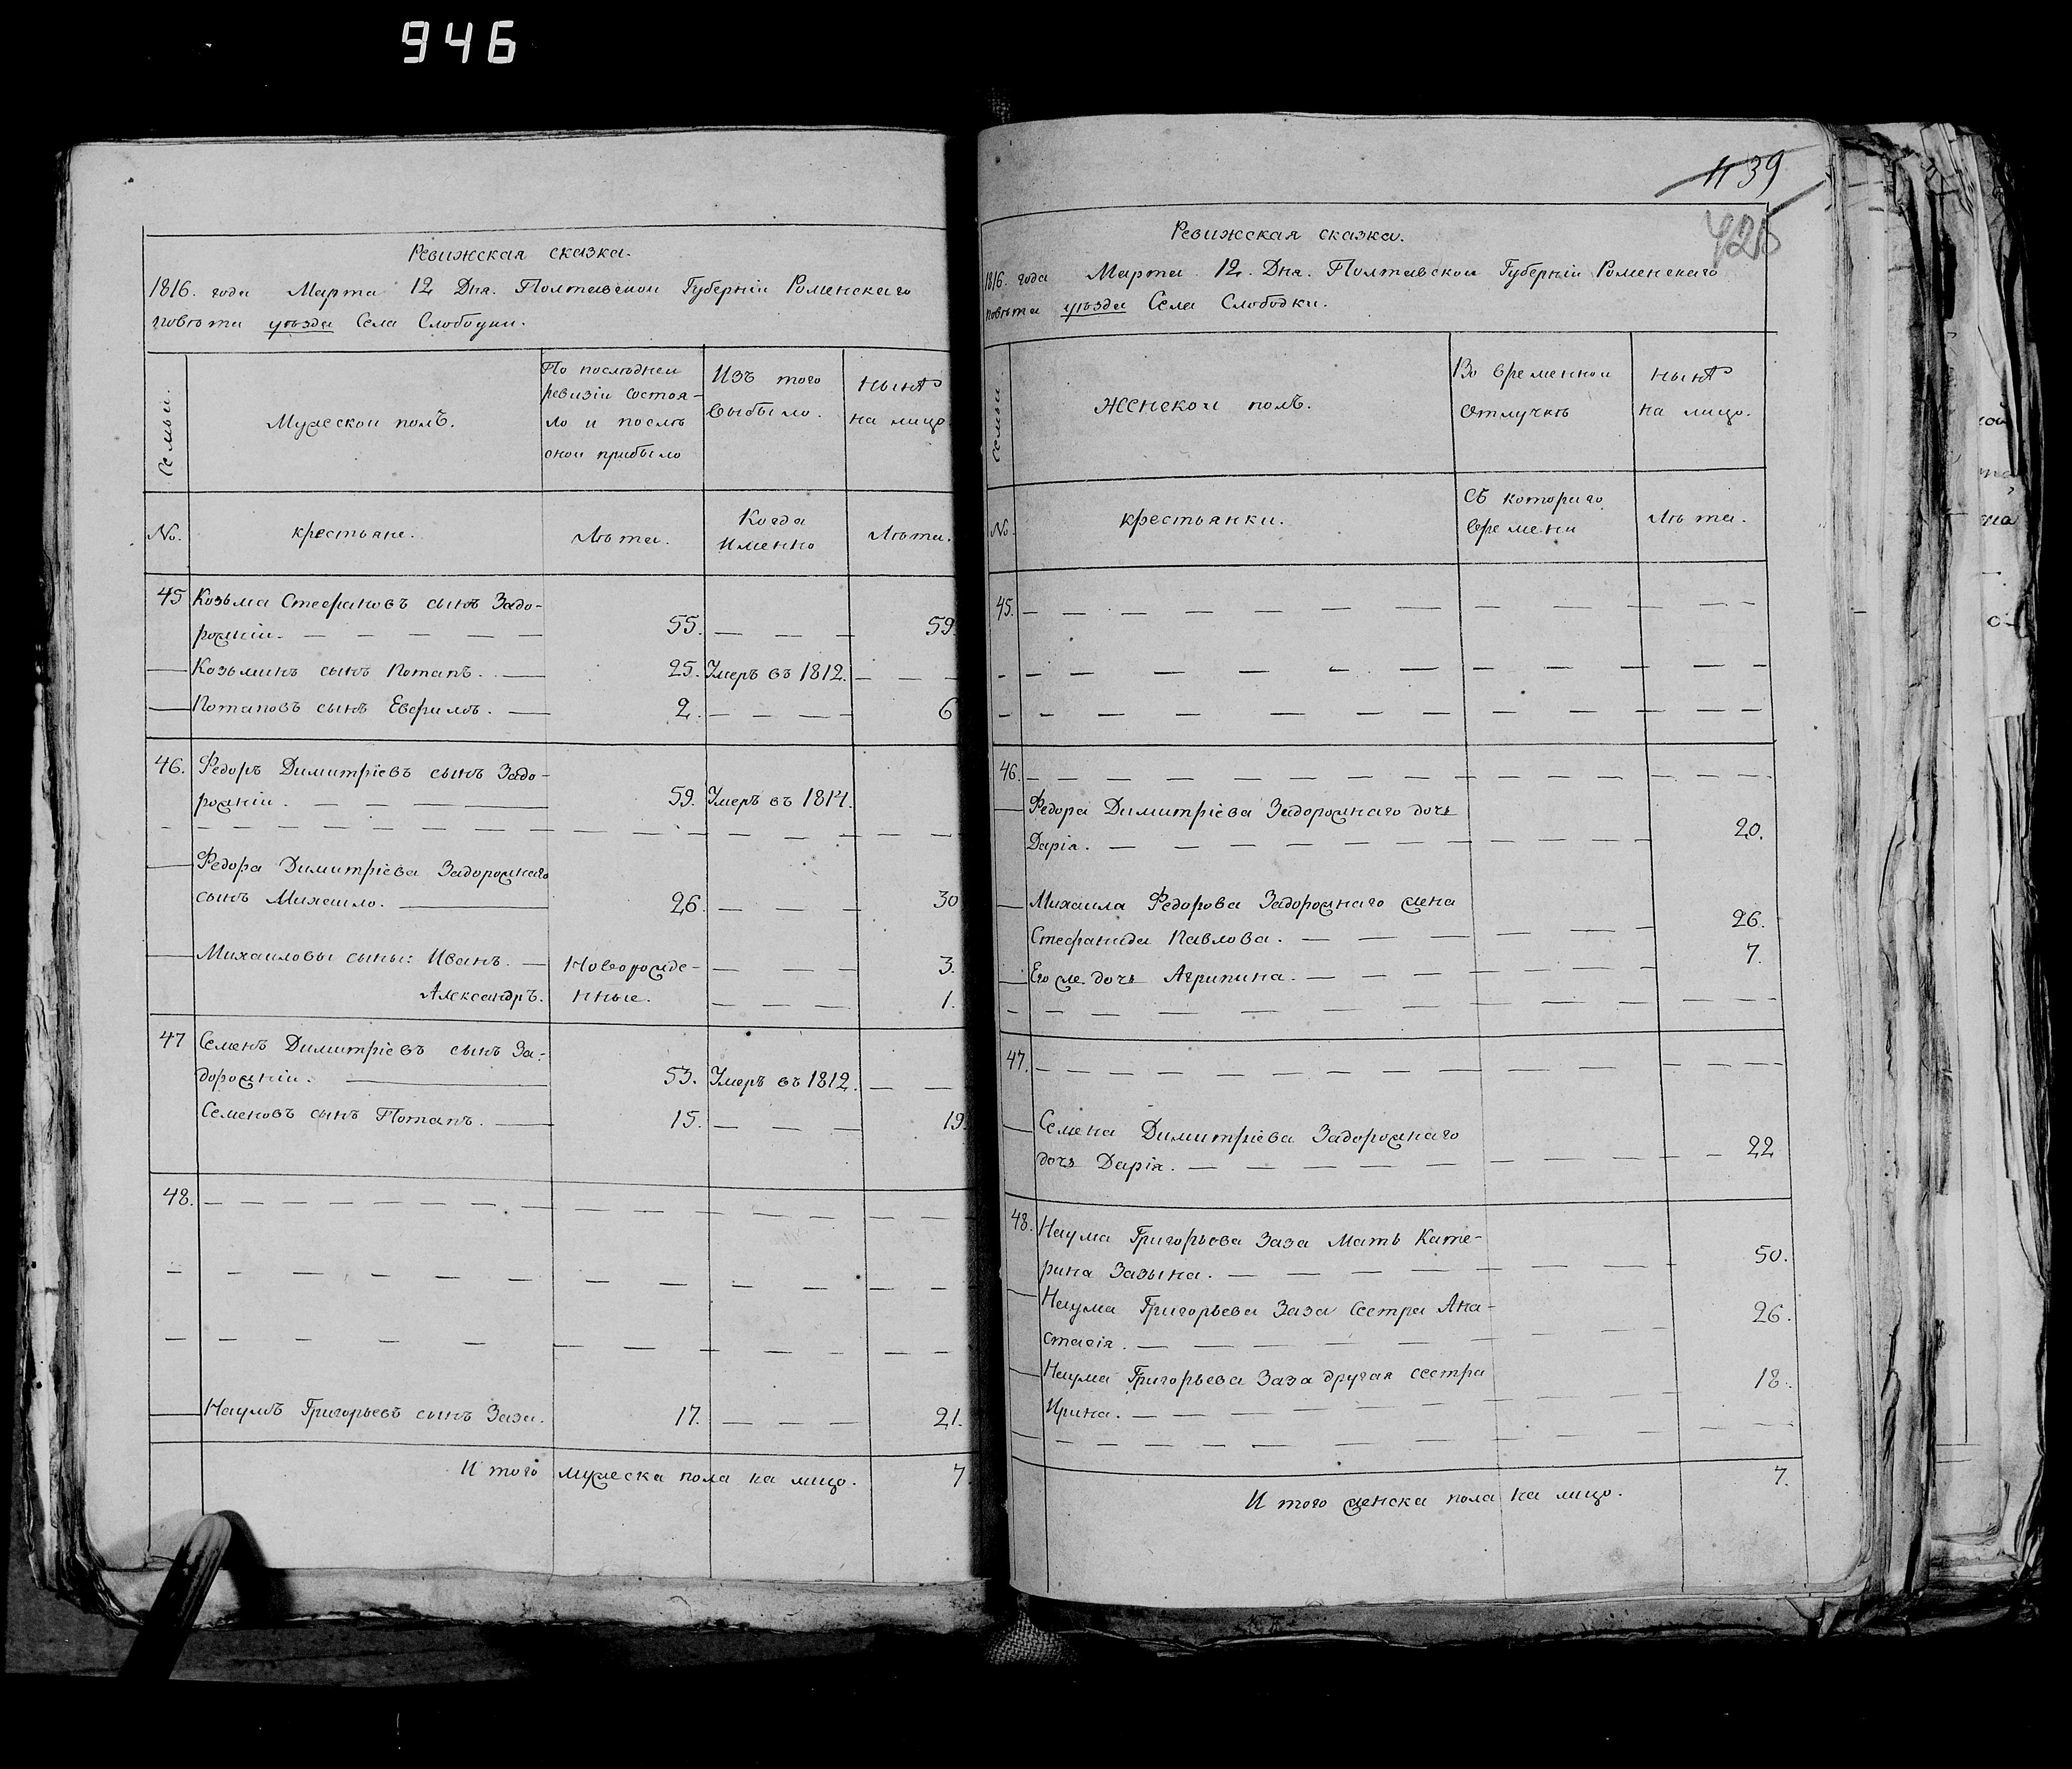 946
Ревижская сказка.
1816. года Марта 12 Дня. Полтавской Губерніи Роменскаго
повѣта уѣзда Села Слободки.
Семьи.
Мужеской полъ.
По послѣдней
ревизіи состоя-
ло и послѣ
оной прибыло
Изъ того
выбыло.
нынѣ
на лицо
No.
крестьяне.
Лѣта.
Когда
именно
Лѣта.
45 Козьма Стефановъ сынъ Задо-
рожній. 55. 59.
Козьминъ сынъ Потапъ. 25. Умеръ въ 1812.
Потаповъ сынъ Евфимъ. 2. 6
46. Федоръ Димитріевъ сынъ Задо-
рожній. 59. Умеръ въ 1814.
Федора Димитріева Задорожнаго
сынъ Михайло. 26. 30
Михайловы сыны: Иванъ. Новорожде- 3.
Александръ. нные. 1.
47 Семенъ Димитріевъ сынъ За-
дорожній. 53. Умеръ въ 1812.
Семеновъ сынъ Потапъ. 15. 19.
48.
Наумъ Григорьевъ сынъ Заза. 17. 21.
И того мужеска пола на лицо. 7
39
Ревижская сказка.
1816. года Марта 12. Дня. Полтавской Губерніи Роменскаго
повѣта уѣзда Села Слободки.
Семьи
Женской полъ.
Во временной
отлучкѣ
нынѣ
на лицо.
No.
крестьянки.
Съ котораго
времени
Лѣта.
45.
46.
Федора Димитріева Задорожнаго дочь
Дарія. 20.
Михайла Федорова Задорожнаго жена
Стефанида Павлова. 26.
Его же дочь Агрипина. 7.
47.
Семена Димитріева Задорожнаго
дочь Дарія. 22
48. Наума Григорьева Заза Мать Кате-
рина Зазына. 50.
Наума Григорьева Заза Сестра Ана-
стасія. 26.
Наума Григорьева Заза другая сестра
Ирина. 18.
И того женска пола на лицо. 7.